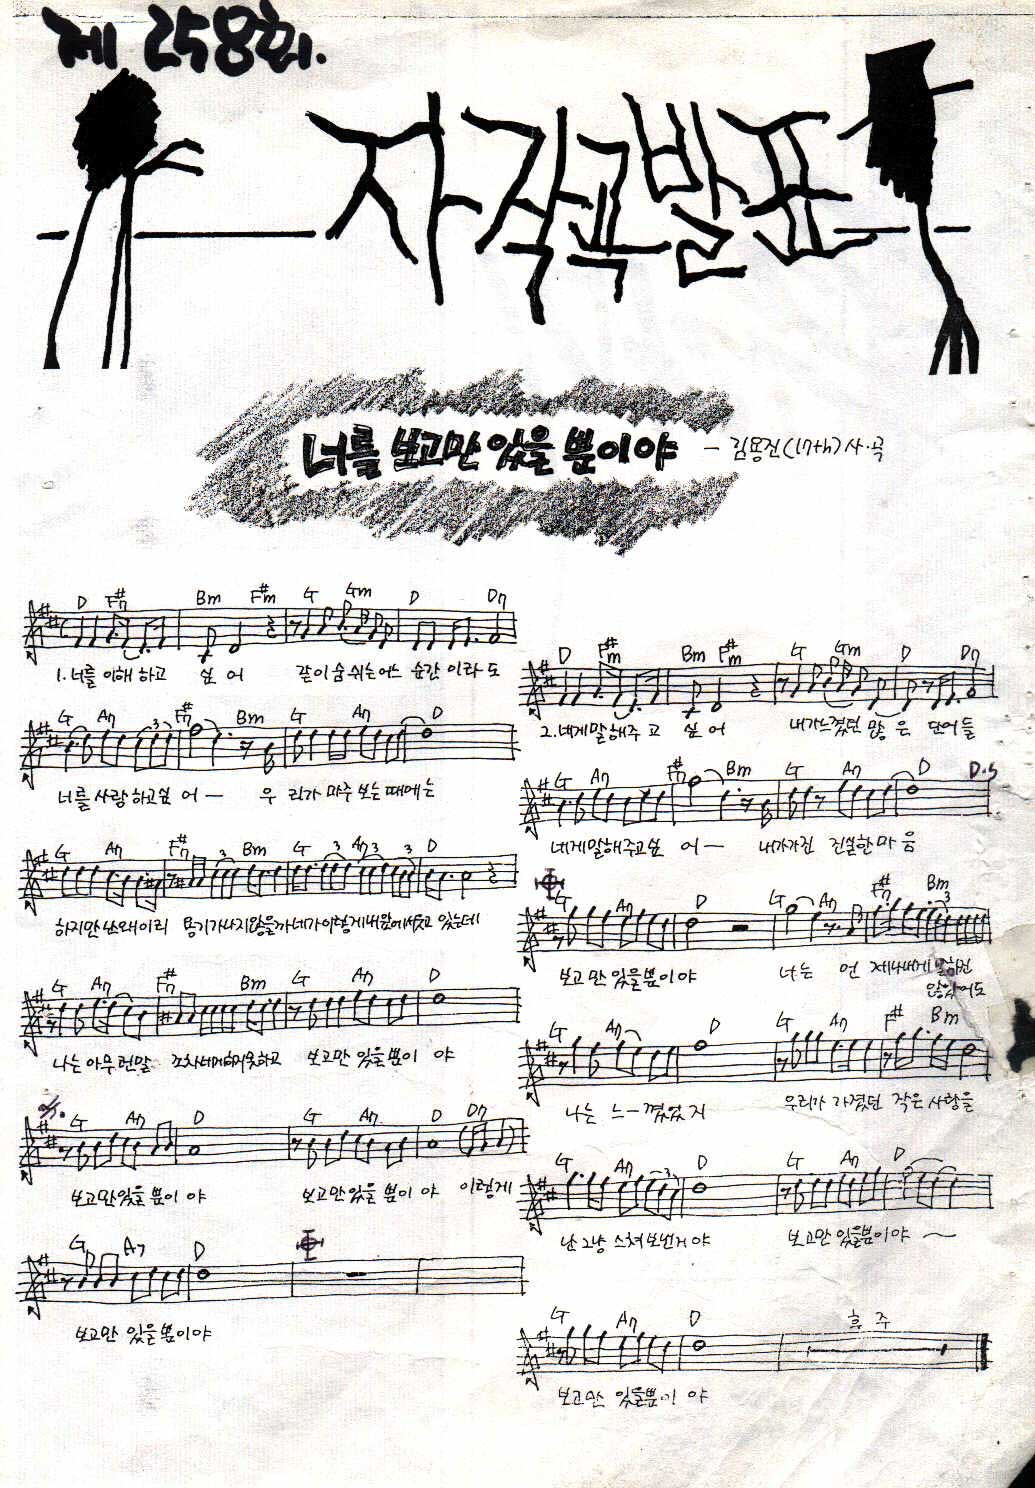 제 258회.
자작곡발표
너를 보고만 있을 뿐이야 - 김용진(17th) 사·곡
D F#7 Bm F#m G Gm D D7
1. 너를 이해 하고 싶 어 같이 숨 쉬는 어느 순간 이라 도
G A7 F#7 Bm G A7 D
너를 사랑 하고싶 어 ー 우 리가 마주 보는 때에는
G A7 F#7 Bm G A7 D
하지만 난 왜 이리 용기가 나지 않을까 네가 이렇게 내 앞에 서 있는데
G A7 F#7 Bm G A7 D
나는 아무런 말 조차 네게 하지 못하고 보고만 있을 뿐이 야
G A7 D G A7 D D7
보고만 있을 뿐이 야 보고만 있을 뿐이 야 이렇게
G A7 D
보고만 있을 뿐이야
D F#m Bm F#m G Gm D D7
2. 네게 말 해주 고 싶 어 내가 느꼈던 많 은 단어들
G A7 F#7 Bm G A7 D D.S
네게 말해주고싶 어 ー 내가 가진 진실한 마 음
G A7 D G A7 F#7 Bm
보고 만 있을 뿐이야 너 는 언 제나 내게 말하진
않았어도
G A7 D G A7 F# Bm
나는 느ー꼈었 지 우리가 가졌던 작은 사랑을
G A7 D G A7 D
난 그냥 스쳐 보낸거야 보고만 있을뿐이야 ~
G A7 D 후 주
보고만 있을뿐이 야